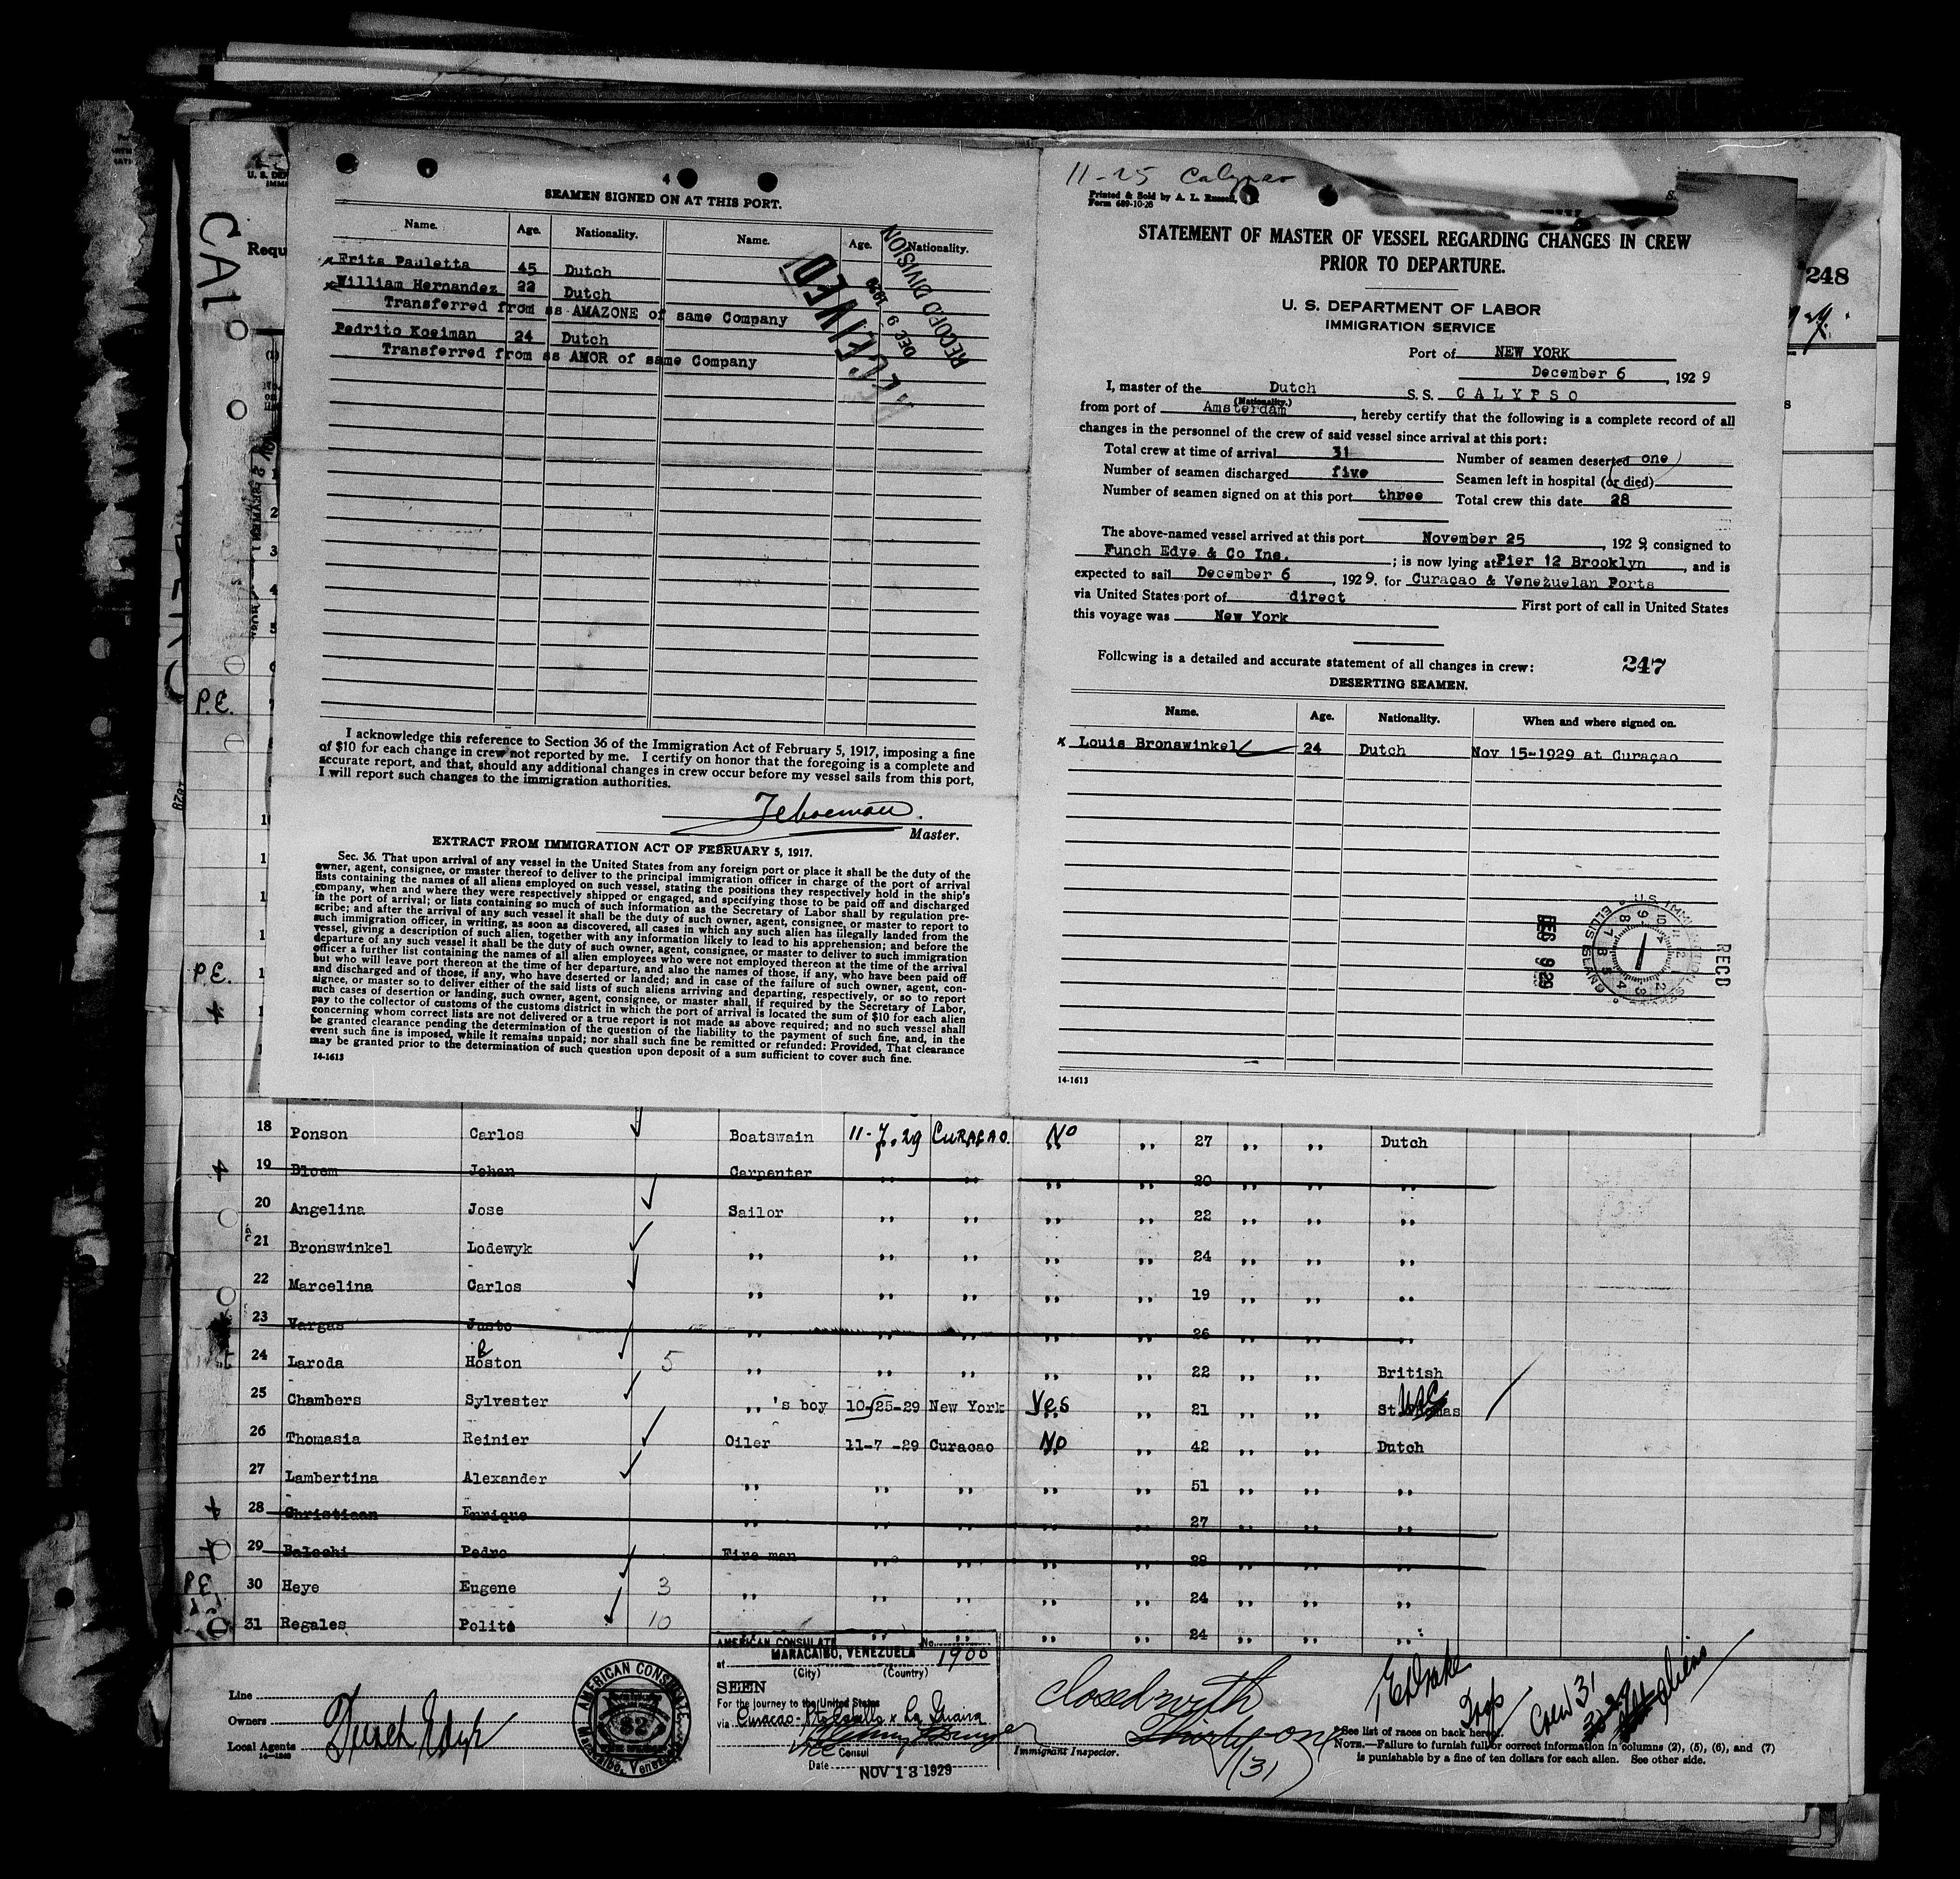 4
SEAMEN SIGNED ON AT THIS PORT.
Name. Age. Nationality. Name. Age. Nationality.
Frits Pauletta 45 Dutch
William Hernandez 22 Dutch
Transferred from ss AMAZONE of same Company
Pedrito Koeiman 24 Dutch
Transferred from ss AMOR of same Company
RECEIVED
DEC 9 1929
RECORD DIVISION
I acknowledge this reference to Section 36 of the Immigration Act of February 5, 1917, imposing a fine
of $10 for each change in crew not reported by me. I certify on honor that the foregoing is a complete and
accurate report, and that, should any additional changes in crew occur before my vessel sails from this port,
I will report such changes to the immigration authorities.
Master.
EXTRACT FROM IMMIGRATION ACT OF FEBRUARY 5, 1917.
Sec. 36. That upon arrival of any vessel in the United States from any foreign port or place it shall be the duty of the
owner, agent, consignee, or master thereof to deliver to the principal immigration officer in charge of the port of arrival
lists containing the names of all aliens employed on such vessel, stating the positions they respectively hold in the ship's
company, when and where they were respectively shipped or engaged, and specifying those to be paid off and discharged
in the port of arrival; or lists containing so much of such information as the Secretary of Labor shall by regulation pre-
scribe; and after the arrival of any such vessel it shall be the duty of such owner, agent, consignee, or master to report to
such immigration officer, in writing, as soon as discovered, all cases in which any such alien has illegally landed from the
vessel, giving a description of such alien, together with any information likely to lead to his apprehension; and before the
departure of any such vessel it shall be the duty of such owner, agent, consignee, or master to deliver to such immigration
officer a further list containing the names of all alien employees who were not employed thereon at the time of the arrival
but who will leave port thereon at the time of her departure, and also the names of those, if any, who have been paid off
and discharged and of those, if any, who have deserted or landed; and in case of the failure of such owner, agent, con-
signee, or master so to deliver either of the said lists of such aliens arriving and departing, respectively, or so to report
such cases of desertion or landing, such owner, agent, consignee, or master shall, if required by the Secretary of Labor,
pay to the collector of customs of the customs district in which the port of arrival is located the sum of $10 for each alien
concerning whom correct lists are not delivered or a true report is not made as above required; and no such vessel shall
be granted clearance pending the determination of the question of the liability to the payment of such fine, and, in the
event such fine is imposed, while it remains unpaid; nor shall such fine be remitted or refunded: Provided, That clearance
may be granted prior to the determination of such question upon deposit of a sum sufficient to cover such fine.
14-1613
11-25 Calypso
Printed & Sold by A. L. Russell,
Form 689-10-28
STATEMENT OF MASTER OF VESSEL REGARDING CHANGES IN CREW
PRIOR TO DEPARTURE.
U. S. DEPARTMENT OF LABOR
IMMIGRATION SERVICE
Port of NEW YORK
December 6, 1929
I, master of the Dutch S.S. CALYPSO
(Nationality.)
from port of Amsterdam, hereby certify that the following is a complete record of all
changes in the personnel of the crew of said vessel since arrival at this port:
Total crew at time of arrival 31 Number of seamen deserted one
Number of seamen discharged five Seamen left in hospital (or died)
Number of seamen signed on at this port three Total crew this date 28
The above-named vessel arrived at this port November 25, 1929, consigned to
Funch Edye & Co Inc.; is now lying at Pier 12 Brooklyn, and is
expected to sail December 6, 1929, for Curaçao & Venezuelan Ports
via United States port of direct First port of call in United States
this voyage was New York
Following is a detailed and accurate statement of all changes in crew: 247
DESERTING SEAMEN.
Name. Age. Nationality. When and where signed on.
x Louis Bronswinkel 24 Dutch Nov 15-1929 at Curaçao
U.S. IMMIGRATION SERVICE ELLIS ISLAND
DEC 9 1929
RECD
14-1613
248
CAL
Requ
P.E.
P.E.
18 Ponson Carlos Boatswain 11-7-29 CURACAO. No ,, 27 ,, ,, Dutch
19 Bloem Johan Carpenter ,, ,, ,, ,, 20 ,, ,, ,,
20 Angelina Jose Sailor ,, ,, ,, ,, 22 ,, ,, ,,
21 Bronswinkel Lodewyk ,, ,, ,, ,, ,, 24 ,, ,, ,,
22 Marcelina Carlos ,, ,, ,, ,, ,, 19 ,, ,, ,,
23 Vargas Justo ,, ,, ,, ,, ,, 26 ,, ,, ,,
24 Laroda Hoston 5 ,, ,, ,, ,, ,, 22 ,, ,, British
25 Chambers Sylvester ,, 's boy 10-25-29 New York Yes ,, 21 ,, ,, St. Thomas USC
26 Thomasia Reinier Oiler 11-7-29 Curacao No ,, 42 ,, ,, Dutch
27 Lambertina Alexander ,, ,, ,, ,, ,, 51 ,, ,, ,,
28 Christiaan Enrique ,, ,, ,, ,, ,, 27 ,, ,, ,,
29 Balochi Pedro Fire man ,, ,, ,, ,, 28 ,, ,, ,,
P.E. 30 Heye Eugene 3 ,, ,, ,, ,, ,, 24 ,, ,, ,,
31 Regales Polite 10 ,, ,, ,, ,, ,, 24 ,, ,, ,,
Line
Owners
Local Agents
Funch Edye
AMERICAN CONSULATE
Maracaibo, Venezuela
AMERICAN CONSULATE No. 1900
at MARACAIBO, VENEZUELA
(City) (Country)
SEEN
For the journey to the United States
via Curacao - Pto Cabello x La Guaira
Vice Consul
Date NOV 13 1929
Closed with
Thirty one
(31)
Immigrant Inspector.
Crew 31
aliens
See list of races on back hereof.
NOTE.—Failure to furnish full or correct information in columns (2), (5), (6), and (7)
is punishable by a fine of ten dollars for each alien. See other side.